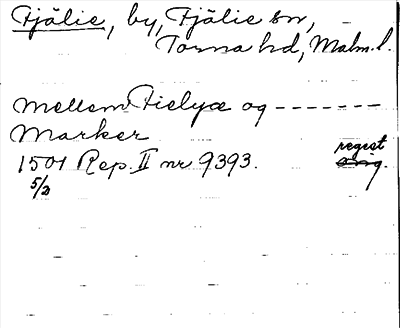 Fjälie, by, Fjälie sn,
Torna hd, Malm. l.
mellem Fielyæ og -------
Marker
1501 Rep. II nr 9393. regist
5/2 orig.